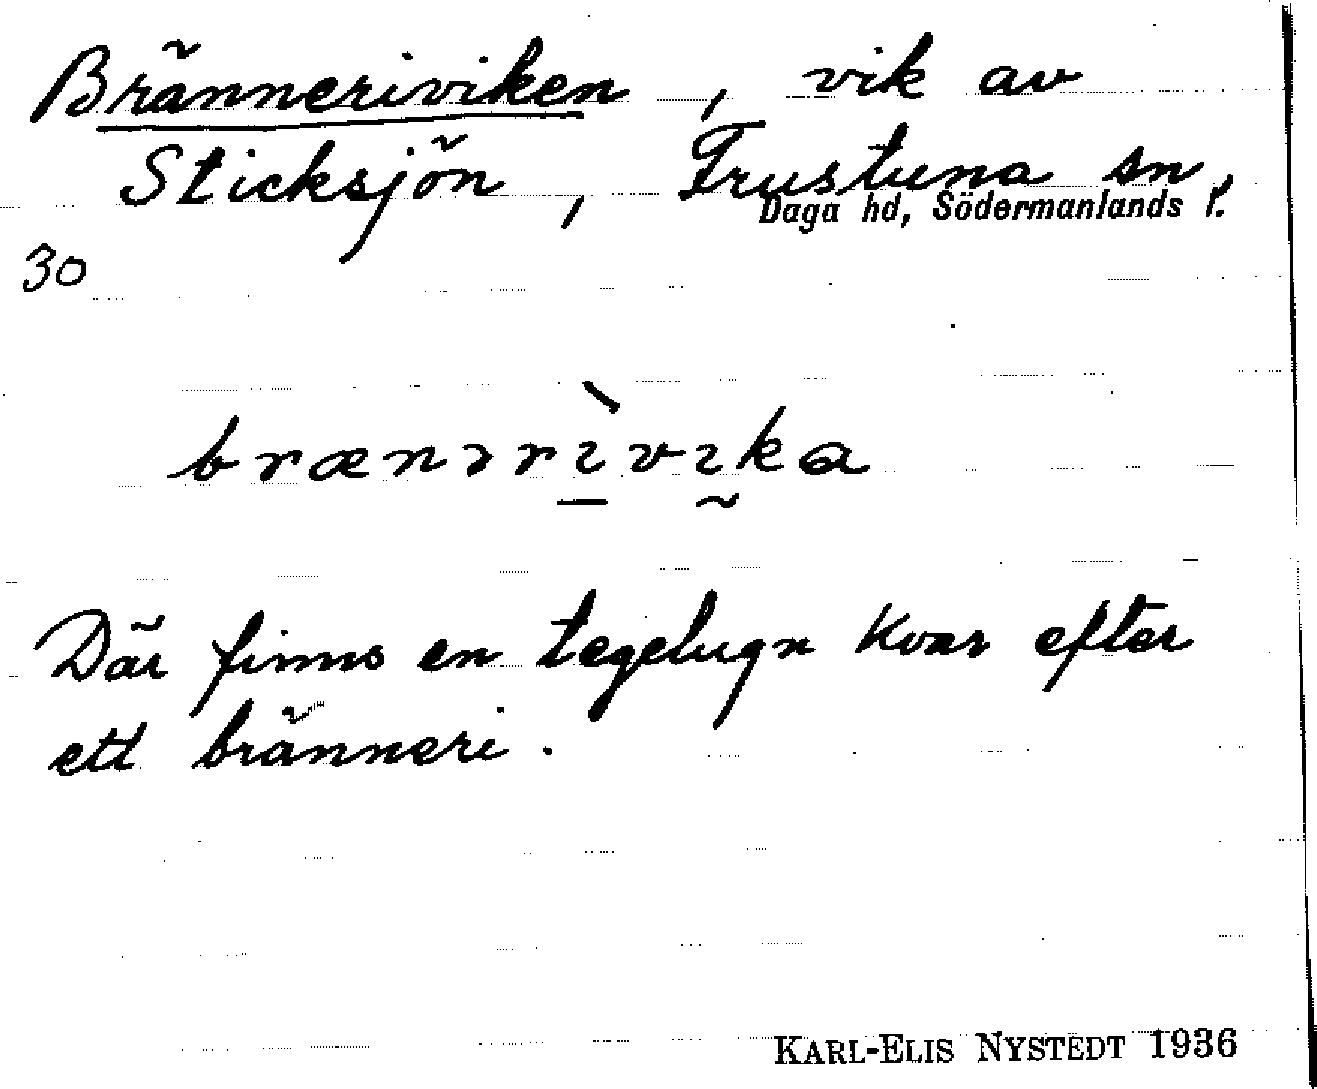 Bränneriviken, vik av
Sticksjön, Frustuna sn,
Daga hd, Södermanlands l.
30
brænərɩ̀vɩka
Där finns en tegelugn kvar efter
ett bränneri.
KARL-ELIS NYSTEDT 1936